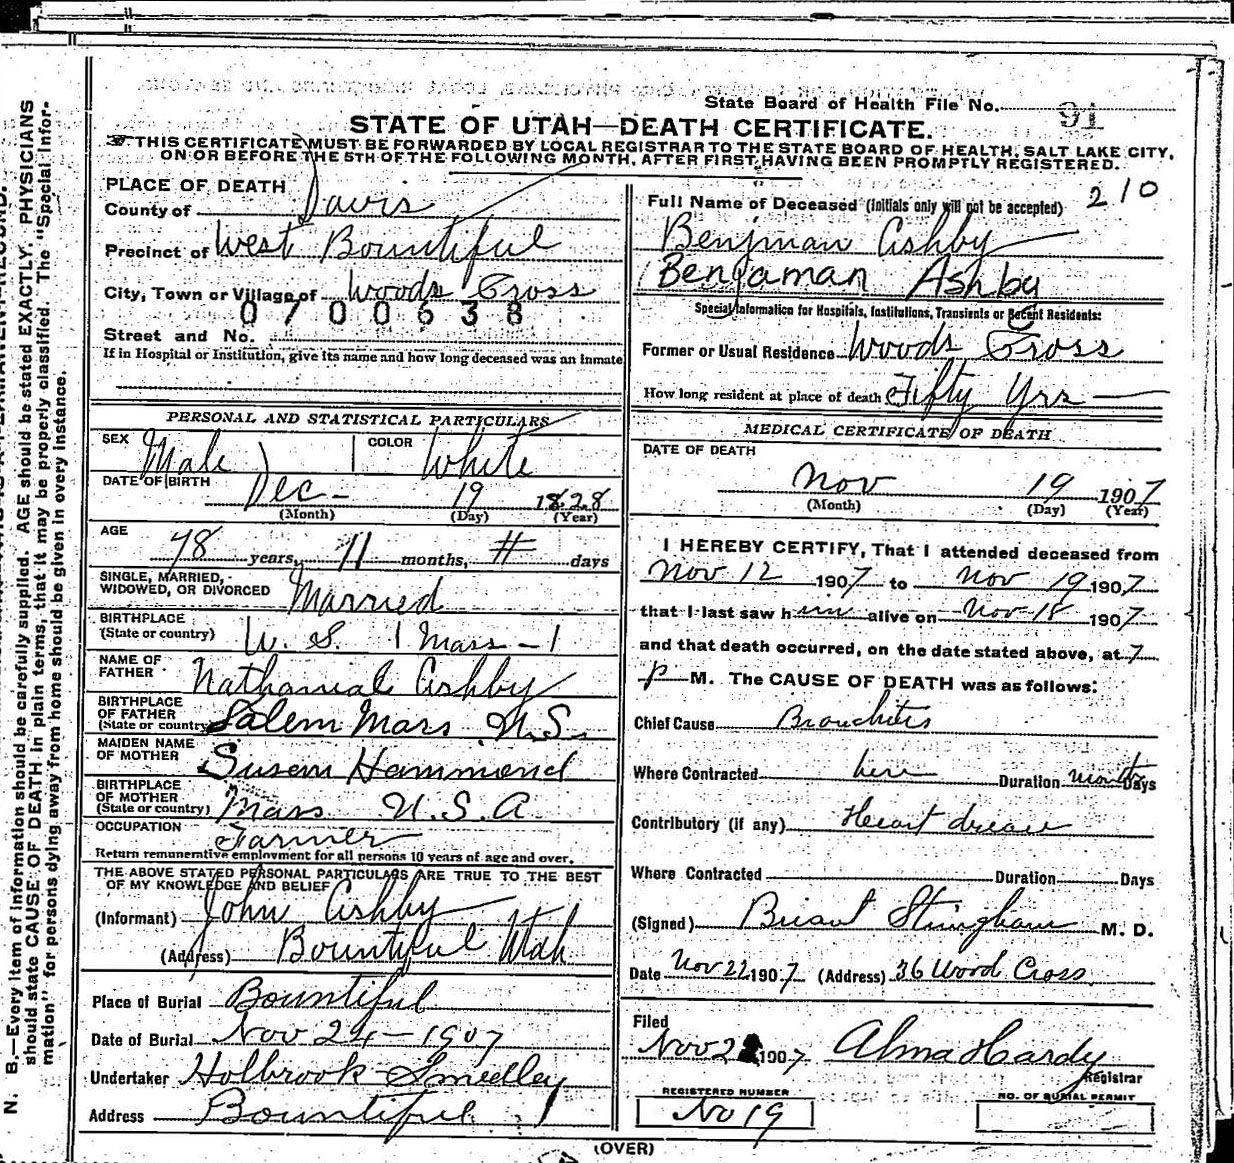 State Board of Health File No. 91
STATE OF UTAH—DEATH CERTIFICATE.
THIS CERTIFICATE MUST BE FORWARDED BY LOCAL REGISTRAR TO THE STATE BOARD OF HEALTH, SALT LAKE CITY,
ON OR BEFORE THE 5TH OF THE FOLLOWING MONTH, AFTER FIRST HAVING BEEN PROMPTLY REGISTERED.
PLACE OF DEATH
County of Davis
Precinct of West Bountiful
City, Town or Village of Woods Cross
0700638
Street and No.
If in Hospital or Institution, give its name and how long deceased was an inmate
PERSONAL AND STATISTICAL PARTICULARS
SEX Male COLOR White
DATE OF BIRTH Dec - 19 1828
(Month) (Day) (Year)
AGE 78 years, 11 months, # days
SINGLE, MARRIED,
WIDOWED, OR DIVORCED Married
BIRTHPLACE
(State or country) U. S. (Mass -)
NAME OF
FATHER Nathanial Ashby
BIRTHPLACE
OF FATHER
(State or country) Salem Mass U.S.
MAIDEN NAME
OF MOTHER Susan Hammond
BIRTHPLACE
OF MOTHER
(State or country) Mass U.S.A
OCCUPATION Farmer
Return remunerative employment for all persons 10 years of age and over.
THE ABOVE STATED PERSONAL PARTICULARS ARE TRUE TO THE BEST
OF MY KNOWLEDGE AND BELIEF
(Informant) John Ashby
(Address) Bountiful Utah
Place of Burial Bountiful
Date of Burial Nov 24 - 1907
Undertaker Holbrook - Smedley
Address Bountiful
210
Full Name of Deceased (Initials only will not be accepted)
Benjman Ashby
Benjaman Ashby
Special Information for Hospitals, Institutions, Transients or Recent Residents:
Former or Usual Residence Woods Cross
How long resident at place of death Fifty Yrs
MEDICAL CERTIFICATE OF DEATH
DATE OF DEATH
Nov 19 1907
(Month) (Day) (Year)
I HEREBY CERTIFY, That I attended deceased from
Nov 12 1907 to Nov 19 1907
that I last saw him alive on Nov 18 1907
and that death occurred, on the date stated above, at 7
P M. The CAUSE OF DEATH was as follows:
Chief Cause Bronchitis
Where Contracted here Duration months Days
Contributory (if any) Heart disease
Where Contracted Duration Days
(Signed) Briant Stringham M. D.
Date Nov 22 1907 (Address) 36 Wood Cross
Filed
Nov 2 1907 Alma Hardy
Registrar
REGISTERED NUMBER
No 19
NO. OF BURIAL PERMIT
(OVER)
N. B.—Every item of information should be carefully supplied. AGE should be stated EXACTLY. PHYSICIANS
should state CAUSE OF DEATH in plain terms, that it may be properly classified. The "Special Infor-
mation" for persons dying away from home should be given in every instance.